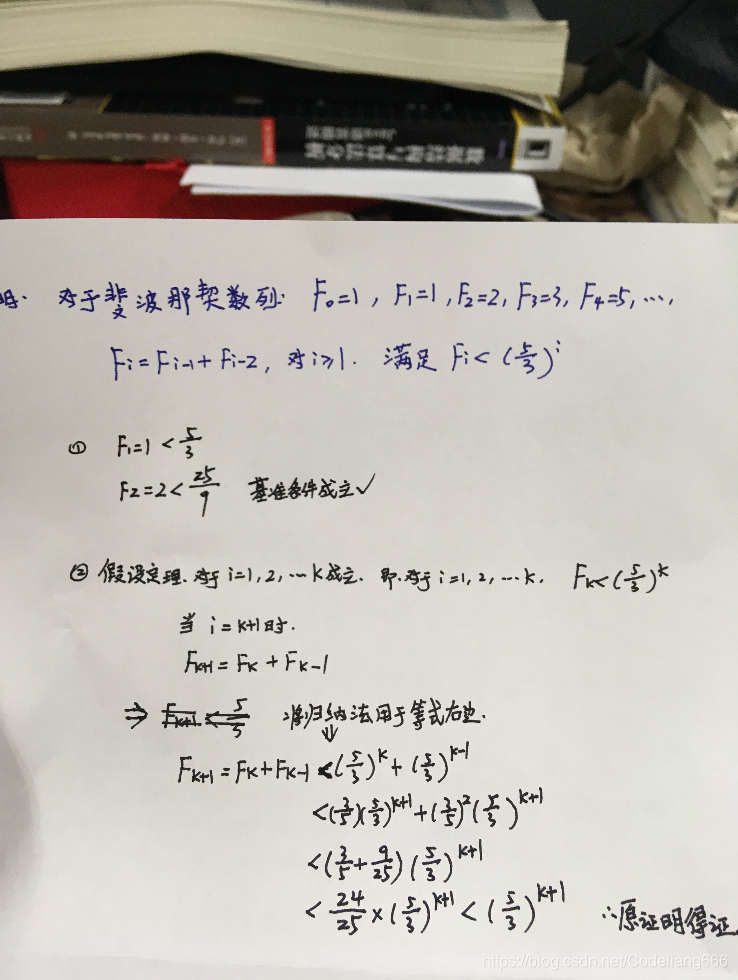 明. 对于斐波那契数列: F₀=1, F₁=1, F₂=2, F₃=3, F₄=5, ⋯,
Fi = Fi-1 + Fi-2, 对i≥1. 满足 Fi < (5/3)^i
① F₁=1 < 5/3
F2=2 < 25/9 基准条件成立✓
② 假设定理.对于i=1,2,⋯k成立. 即.对于i=1,2,⋯k, Fk<(5/3)^k
当 i=k+1时.
Fk+1 = Fk + Fk-1
⇒ 归纳法用于等式右边.
Fk+1 = Fk + Fk-1 < (5/3)^k + (5/3)^k-1
< (3/5)(5/3)^k+1 + (3/5)^2 (5/3)^k+1
< (3/5 + 9/25) (5/3)^k+1
< 24/25 × (5/3)^k+1 < (5/3)^k+1 ∴原证明得证.
https://blog.csdn.net/Codeliang666